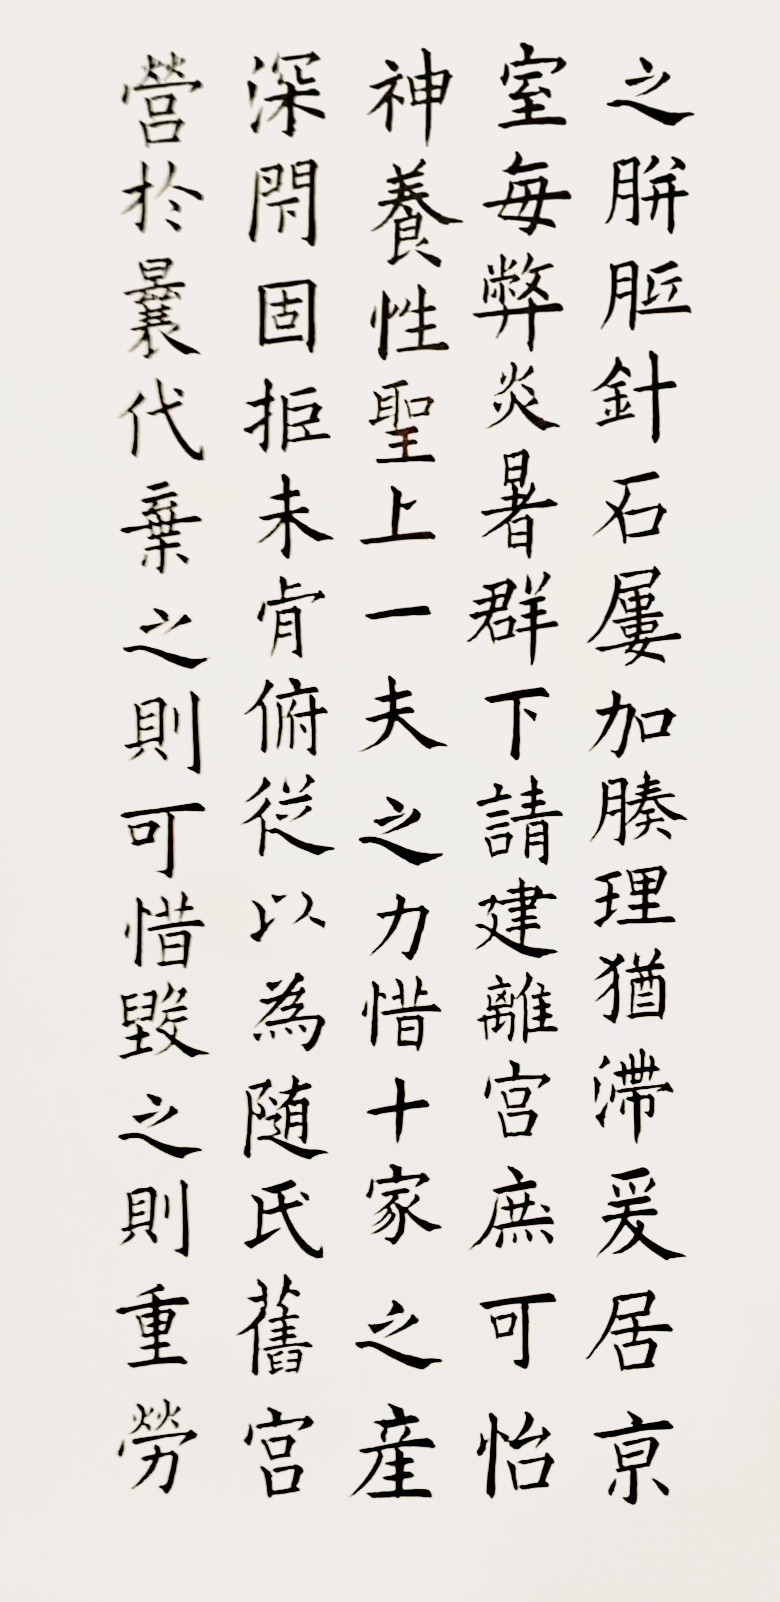 之胼胝針石屢加腠理猶滯爰居京
室每弊炎暑群下請建離宮庶可怡
神養性聖上一夫之力惜十家之産
深閇固拒未肯俯従以為随氏舊宮
營於曩代棄之則可惜毀之則重勞